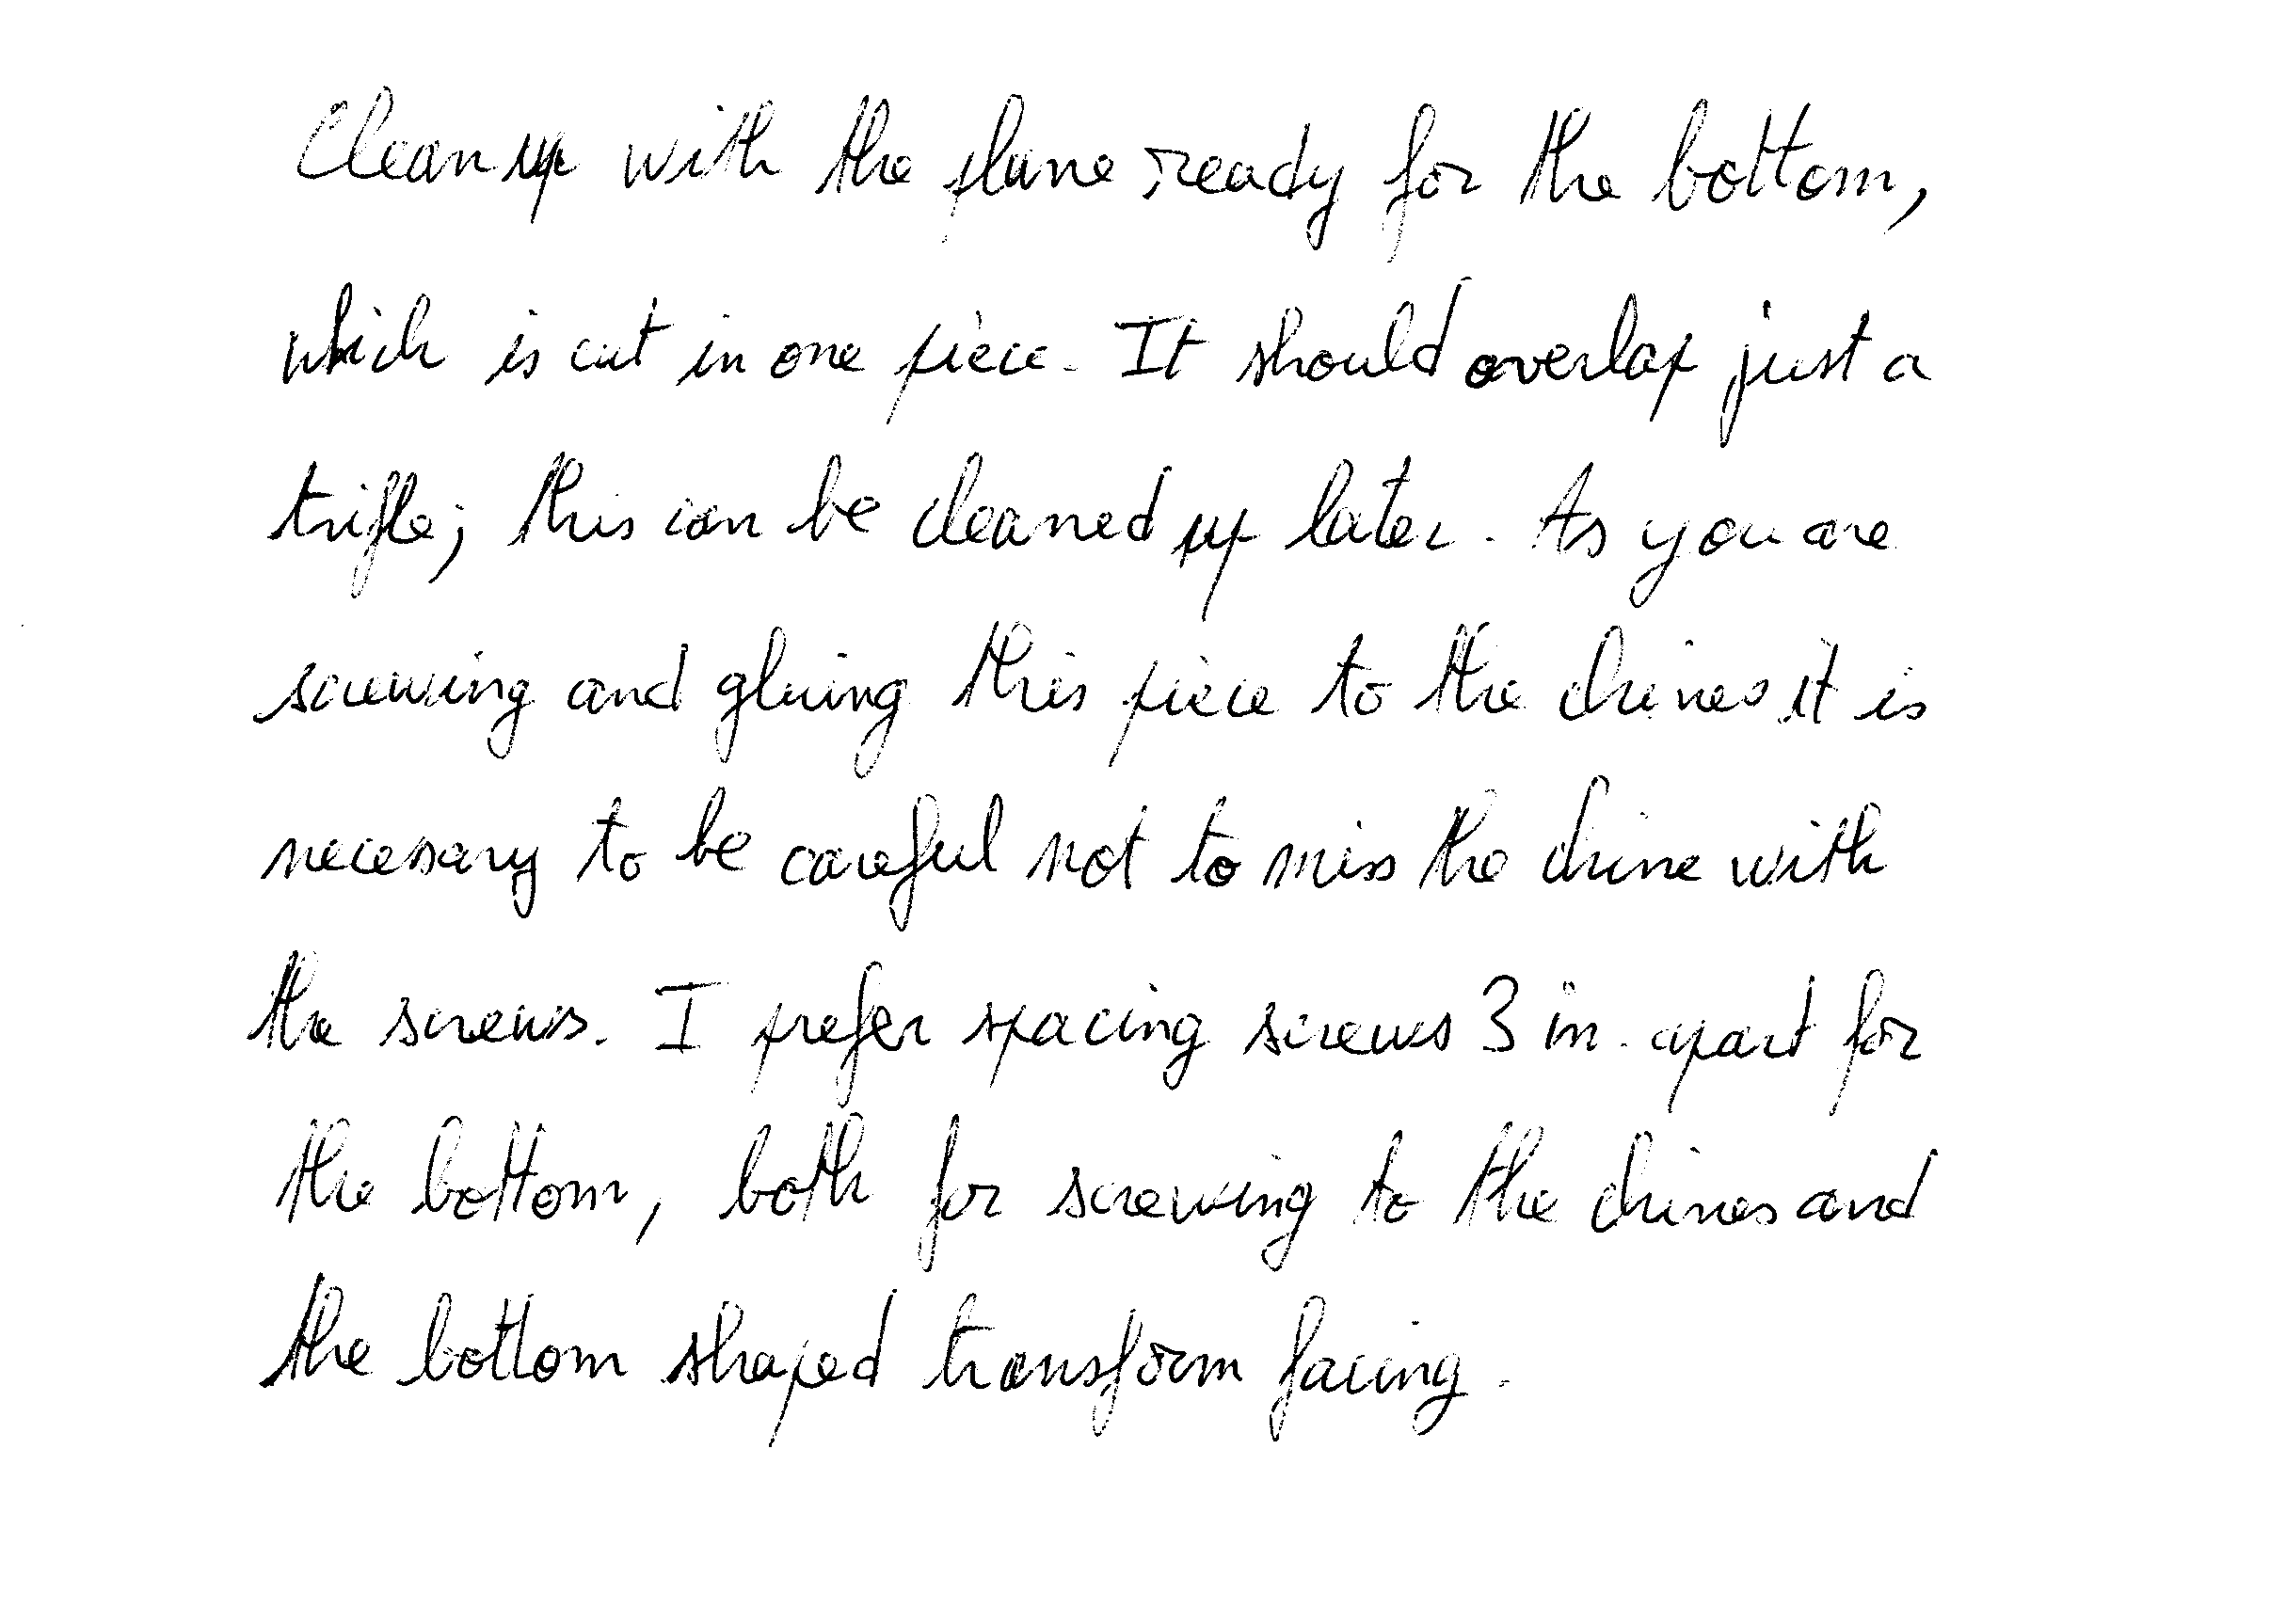 Clean up with the plane ready for the bottom,
which is cut in one piece. It should overlap just a
trifle; this can be cleaned up later. As you are
screwing and gluing this piece to the chines it is
necesary to be careful not to miss the chine with
the screws. I prefer spacing screws 3 in. apart for
the bottom, both for screwing to the chines and
the bottom shaped transform facing.